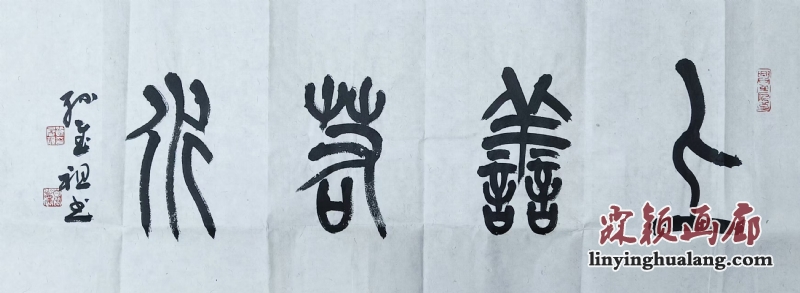 上善若水
孙金祖书
霖颖画廊
linyinghualang.com